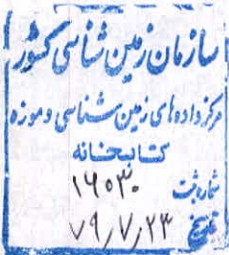 سازمان زمین شناسی کشور
مرکز داده های زمین شناسی و موزه
کتابخانه
شماره ثبت ۱۶۵۳۰
تاریخ ۷۹/۷/۲۳